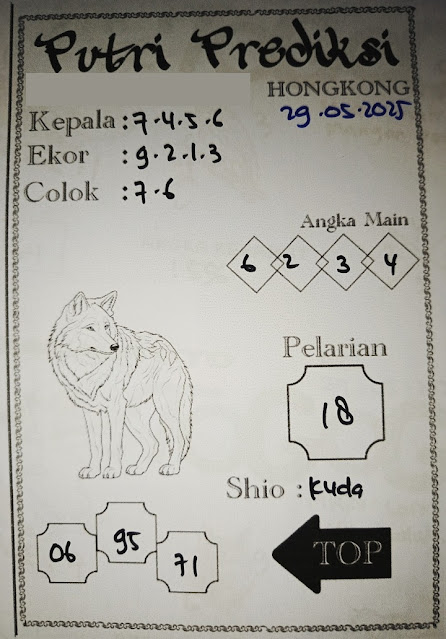 Putri Prediksi
HONGKONG
29.05.2025
Kepala : 7.4.5.6
Ekor : 9.2.1.3
Colok : 7.6
Angka Main
6 2 3 4
Pelarian
18
Shio : Kuda
06 95 71
TOP